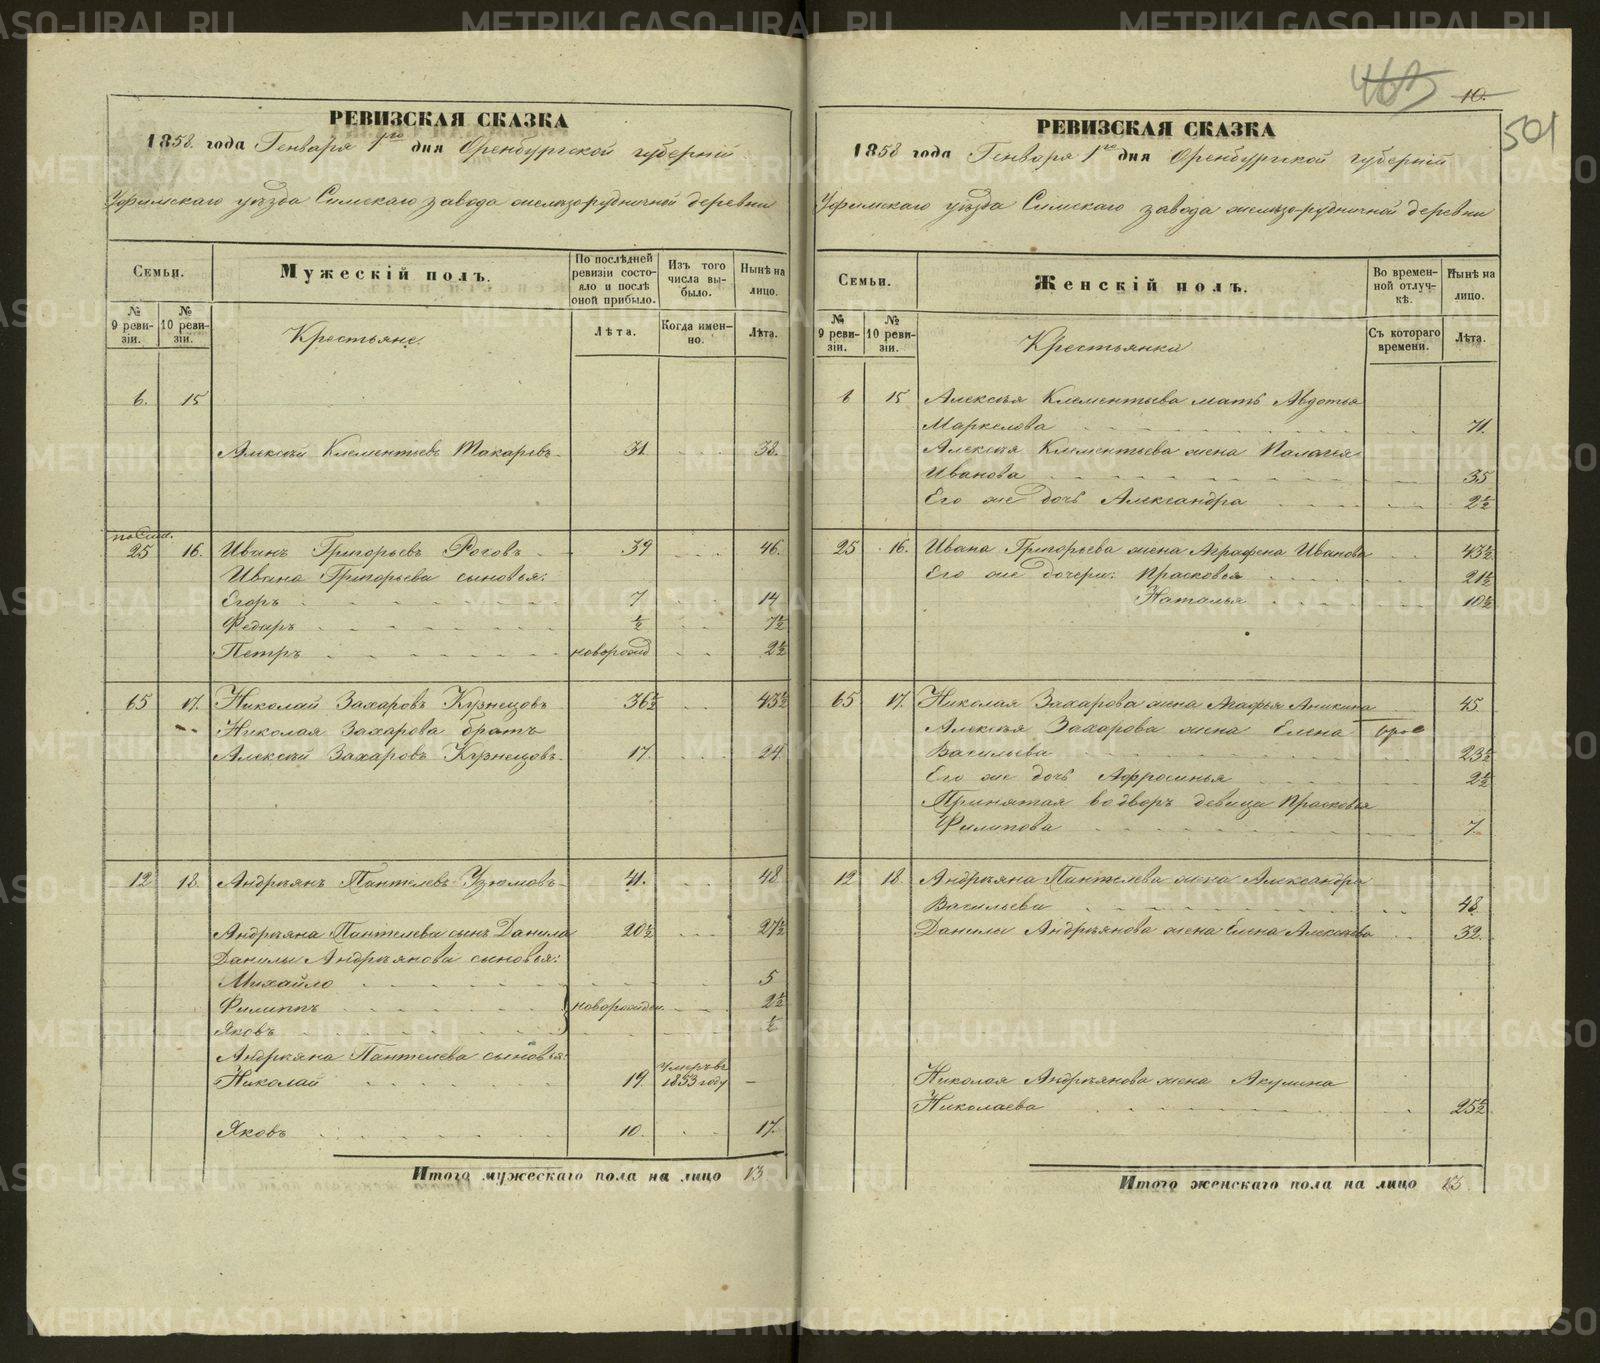 РЕВИЗСКАЯ СКАЗКА
1858 года Генваря 1го дня Оренбургской губерніи
Уфимскаго уѣзда Симскаго завода желѣзо-рудничной деревни
Семьи.
Мужескій полъ.
По послѣдней ревизіи состояло и послѣ оной прибыло.
Изъ того числа выбыло.
Нынѣ на лицо.
№ 9 ревизіи.
№ 10 ревизіи.
Крестьяне.
Лѣта.
Когда именно.
Лѣта.
6. 15
Алексѣй Клементьевъ Макаровъ 31 38.
25 16. Иванъ Григорьевъ Роговъ 39 46.
Ивана Григорьева сыновья:
Егоръ 7 14
Федаръ ½ 7½
Петръ новорожд 2½
65 17. Николай Захаровъ Кузнецовъ 36½ 43½
Николая Захарова братъ
Алексѣй Захаровъ Кузнецовъ 17. 24
12 18. Андрѣянъ Пантелевъ 41. 48
Андрѣяна Пантелева сынъ Данила 20½ 27½
Данилы Андрѣянова сыновья:
Михайло 5
Филиппъ новорожден. 2½
Яковъ ½
Андрѣяна Пантелева сыновья:
Николай 19. умеръ въ 1853 году –
Яковъ 10. 17.
Итого мужескаго пола на лицо 13
465 10.
501
РЕВИЗСКАЯ СКАЗКА
1858 года Генваря 1го дня Оренбургской губерніи
Уфимскаго уѣзда Симскаго завода желѣзо-рудничной деревни
Семьи.
Женскій полъ.
Во временной отлучкѣ.
Нынѣ на лицо.
№ 9 ревизіи.
№ 10 ревизіи.
Крестьянки
Съ котораго времени.
Лѣта.
6 15 Алексѣя Клементьева мать Авдотья
Маркелова 71.
Алексѣя Клементьева жена Палагея
Иванова 35
Его же дочь Александра 2½
25 16. Ивана Григорьева жена Аграфена Иванова 43½
Его же дочери: Прасковья 21½
Наталья 10½
65 17. Николая Захарова жена Агафья Аникина 45
Алексѣя Захарова жена Елена
Васильева 23½
Его же дочь Афросинья 2½
Принятая во дворъ девица Прасковья
Филипова 7.
12 18. Андрѣяна Пантелева жена Александра
Васильева 48.
Данилы Андрѣянова жена Елена Алексѣева 32.
Николая Андрѣянова жена Акулина
Николаева 25½
Итого женскаго пола на лицо 13
METRIKI.GASO-URAL.RU